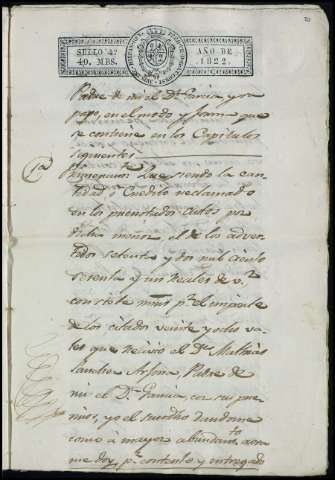 SELLO 4º
40. MRS.
AÑO DE
1822.
Padre de mi el Dn. Garcia y
pago, en el modo y forma que
se contiene en los Capitulos
siguientes
1ª
Primeramte. Que siendo la can-
tidad ó Credito reclamado
en los autos por
dicha el de los
setenta y dos mil ciento
setenta y un Reales de vn.
con siete mrs. pr. el importe
de los citados veinte y ocho va-
les que recivió el Dn. Mathias
Sanchez Arjona, Padre de
mi el Dn. Garcia, con sus pre-
mios, yo el dandome
como á mayor abundamto.
me doy, pr. contento y entregado